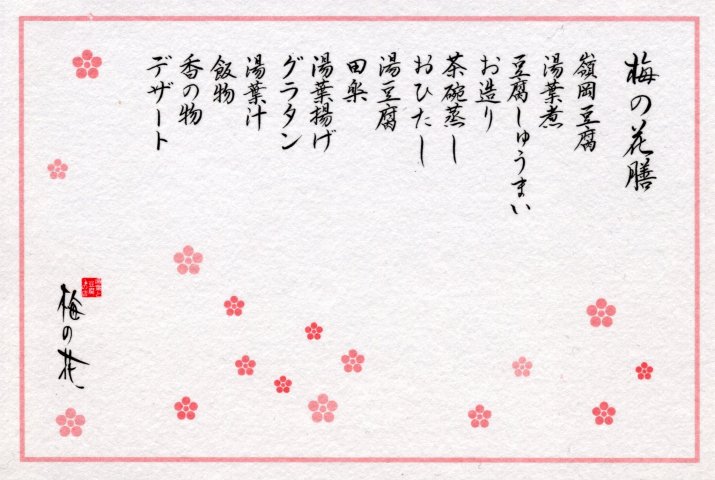 梅の花膳
嶺岡豆腐
湯葉煮
豆腐しゅうまい
お造り
茶碗蒸し
おひたし
湯豆腐
田楽
湯葉揚げ
グラタン
湯葉汁
飯物
香の物
デザート
梅の花